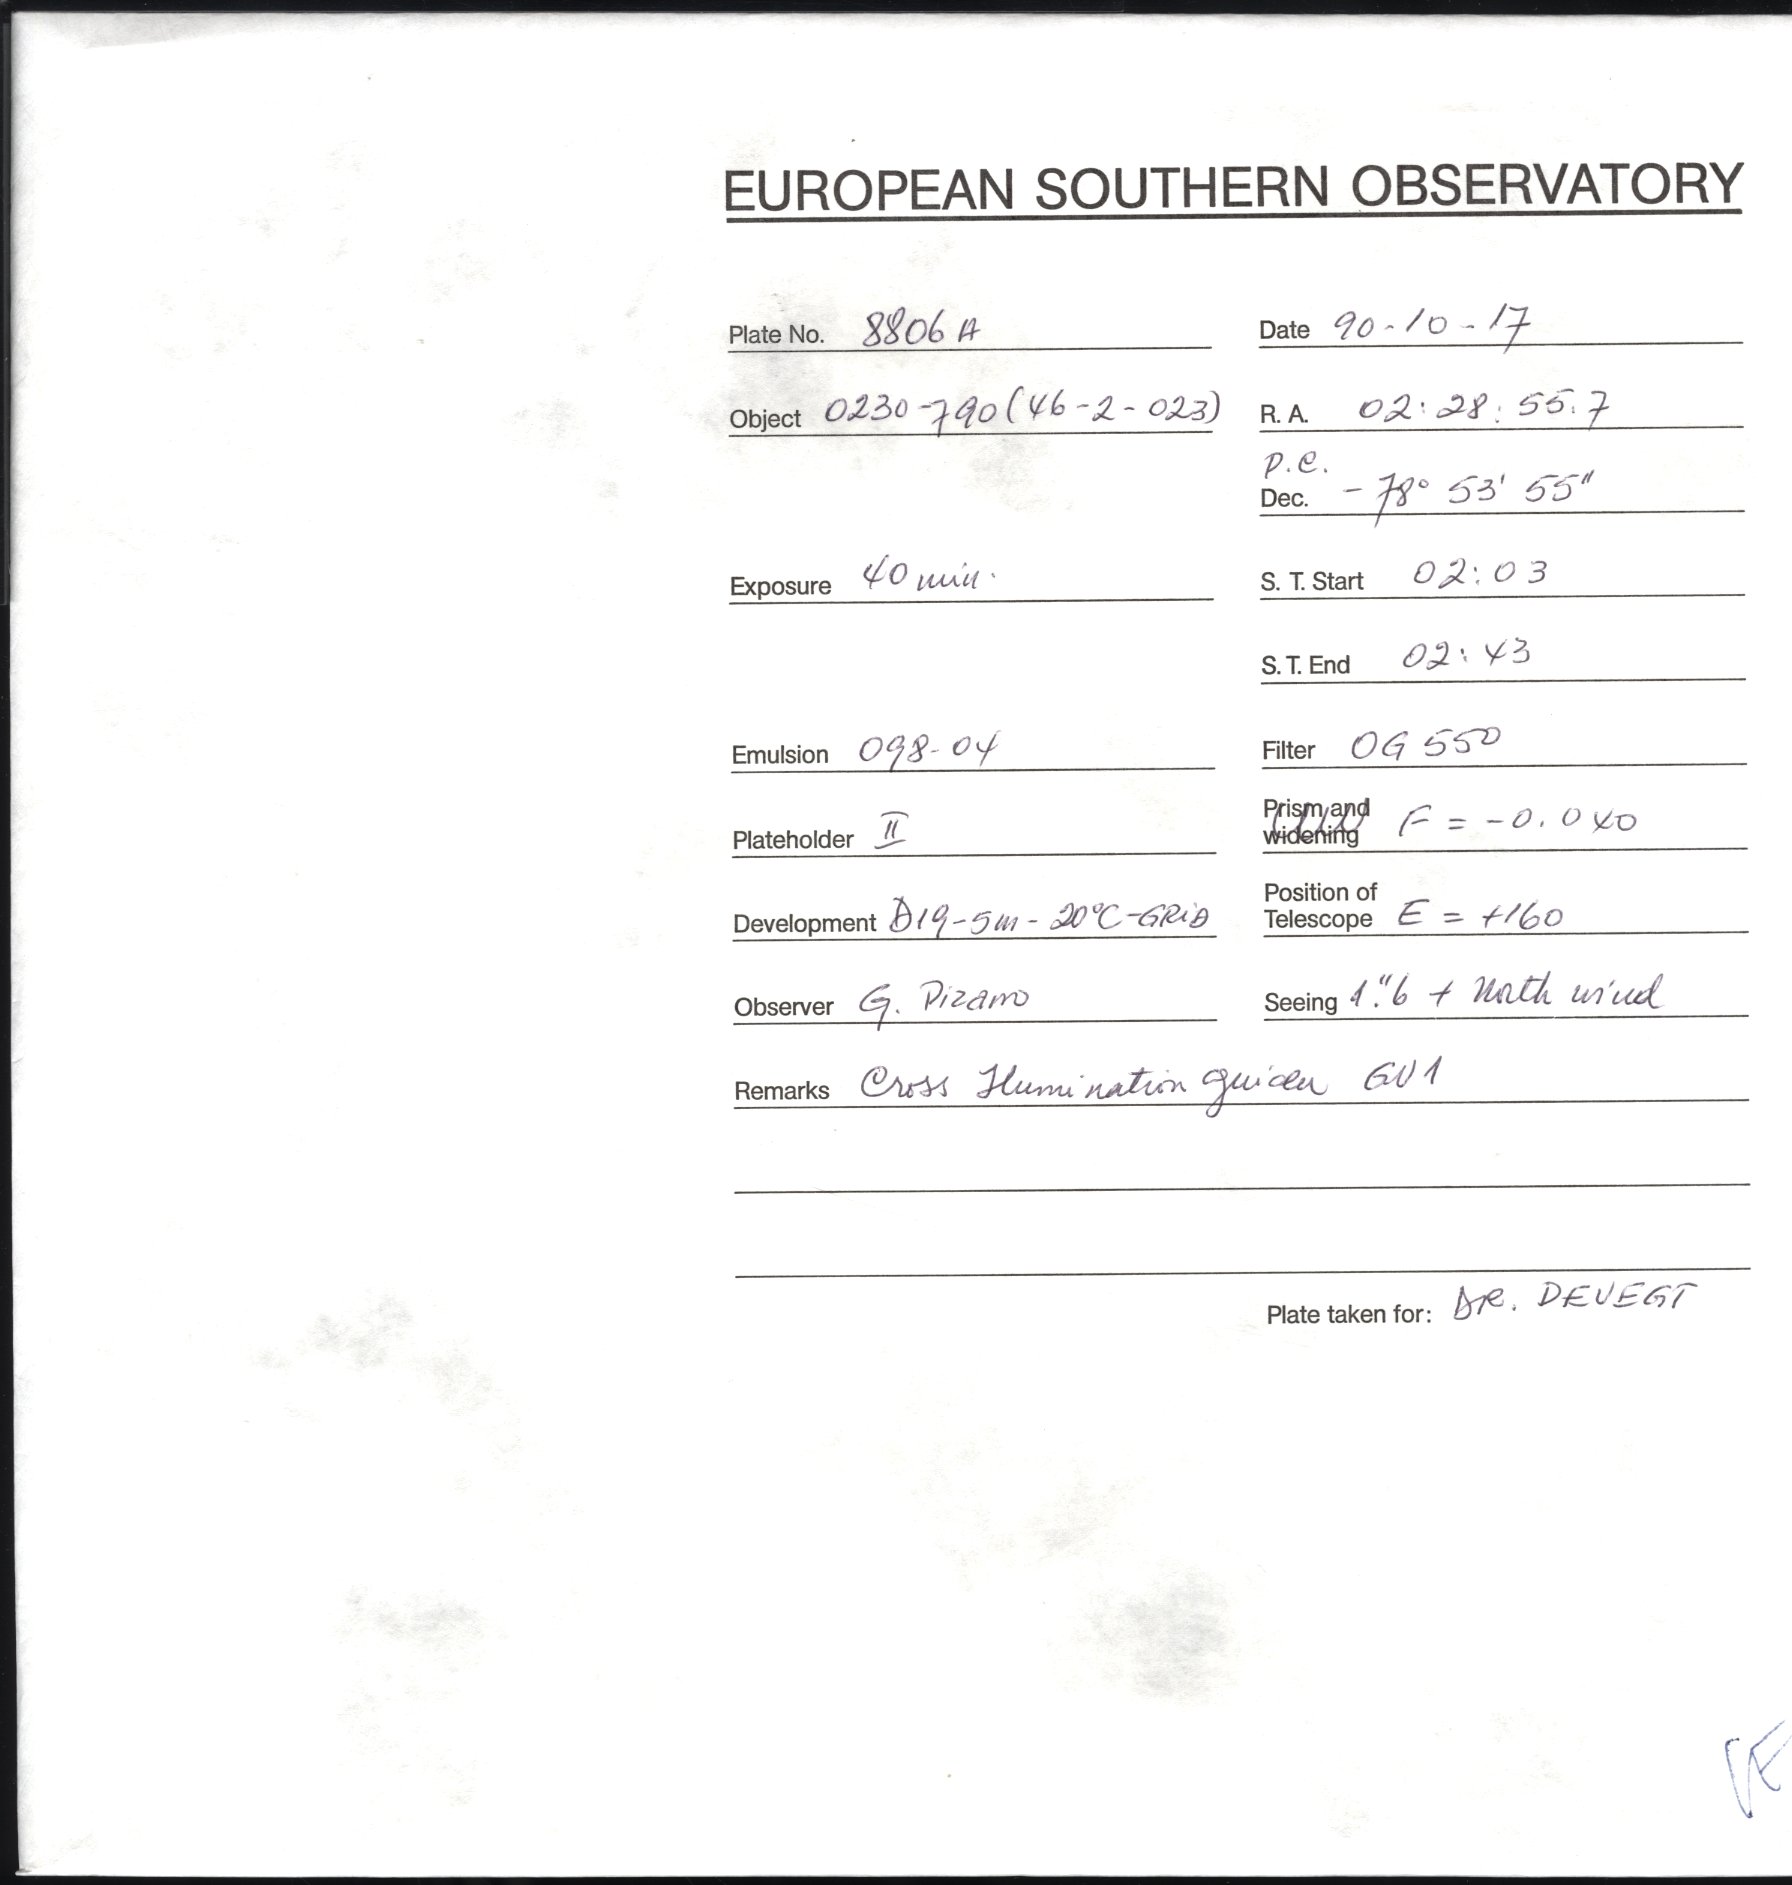 EUROPEAN SOUTHERN OBSERVATORY
Plate No. 8806 A
Date 90-10-17
Object 0230-790 (46-2-023)
R. A. 02:28:55.7
P.C.
Dec. -78° 53' 55"
Exposure 40 min.
S. T. Start 02:03
S. T. End 02:43
Emulsion 098-04
Filter OG 550
Plateholder II
Prism and widening F = -0.040
Development D19-5m-20°C-GRID
Position of Telescope E = +160
Observer G. Pizarro
Seeing 1."6 + North wind
Remarks Cross Ilumination guider GV1
Plate taken for: DR. DEVEGT